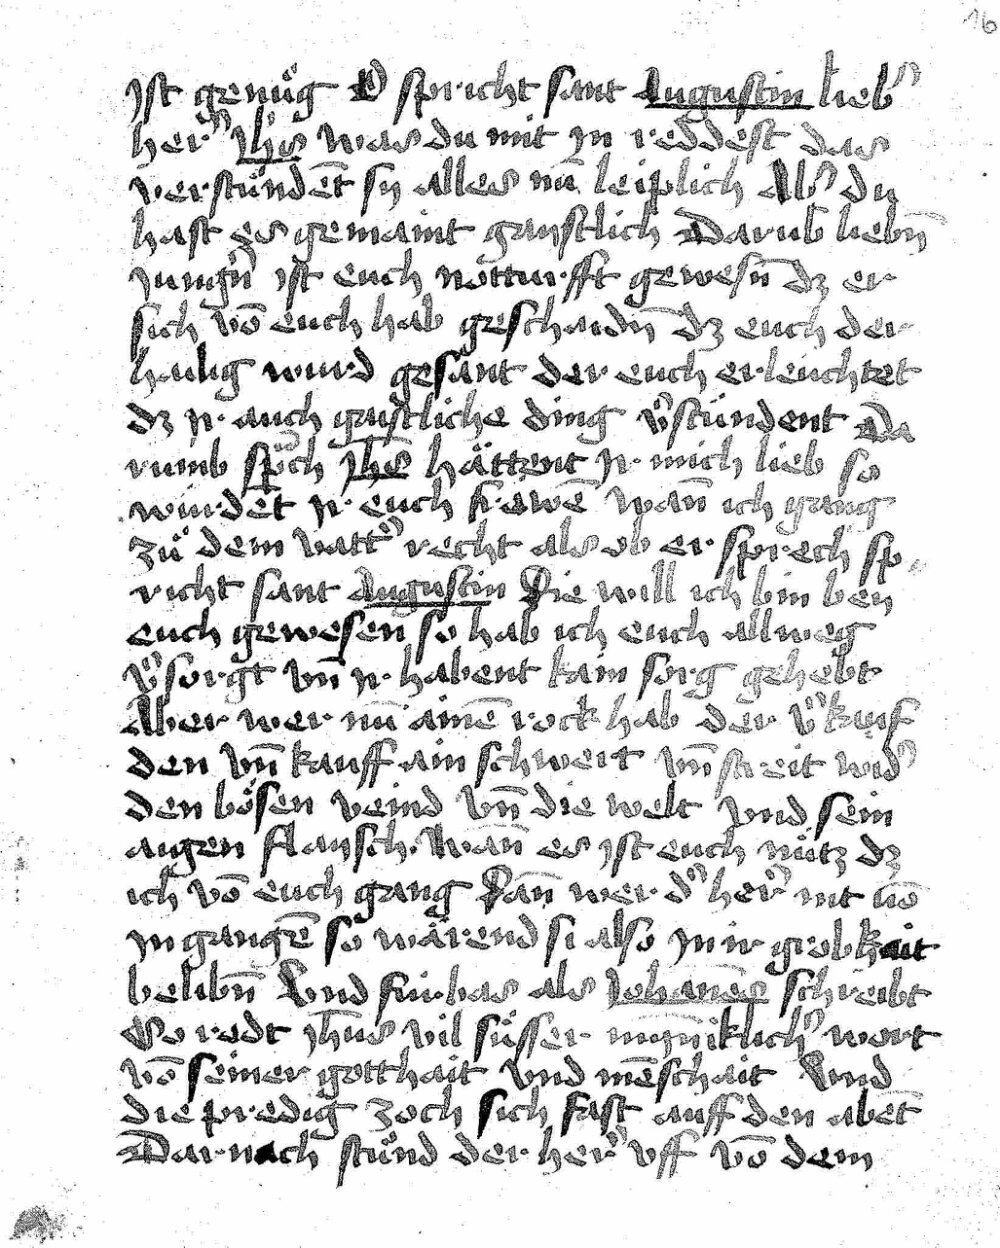 16
ist genüg O spricht sant Augustin lieb̄
her̄ Jhs was du mit in reddest das
verstündēt sy alles nū leiplich Als du
hast es gemaint gaistlich Darūb liebn̄
Jungn̄ ist euch notturfft gewesn̄ dz er
sich vō euch hab geschaidn̄ dz euch der
hailig wurd gesant der euch erleuchtet
dz ir auch gaistliche ding v̄stündent Da
rumb sp̄ch Jhs hättent ir mich lieb so
würdet ir euch frewē wan̄ ich gang
zü dem vatt̄ recht als ob er sprech sp
richt sant Augustin Die will ich bin beÿ
euch gewesen so hab ich euch allweg
v̄sorgt vn̄ ir habent kain sorg gehebt
Aber wer nū ainē rock hab der v̄kauf
den vn̄ kauff ain schwert vn̄ streit wid̄
den bösen veind vn̄ die welt vnd sein
aigen flaysch. Wan̄ es ist euch nütz dz
ich vō euch gang Dan̄ wer d̄ her̄ nit vō
in gangē so wärend si also in ir grobkait
belibn̄ Vnd fürbas als Johanēs schreibt
So redt Jhus vil süsser miniklich̄ wort
vō seiner gotthait vnd mēschait Vnd
die predig zoch sich fast auff den abēt
Darnach stünd der her̄ vff vō dem